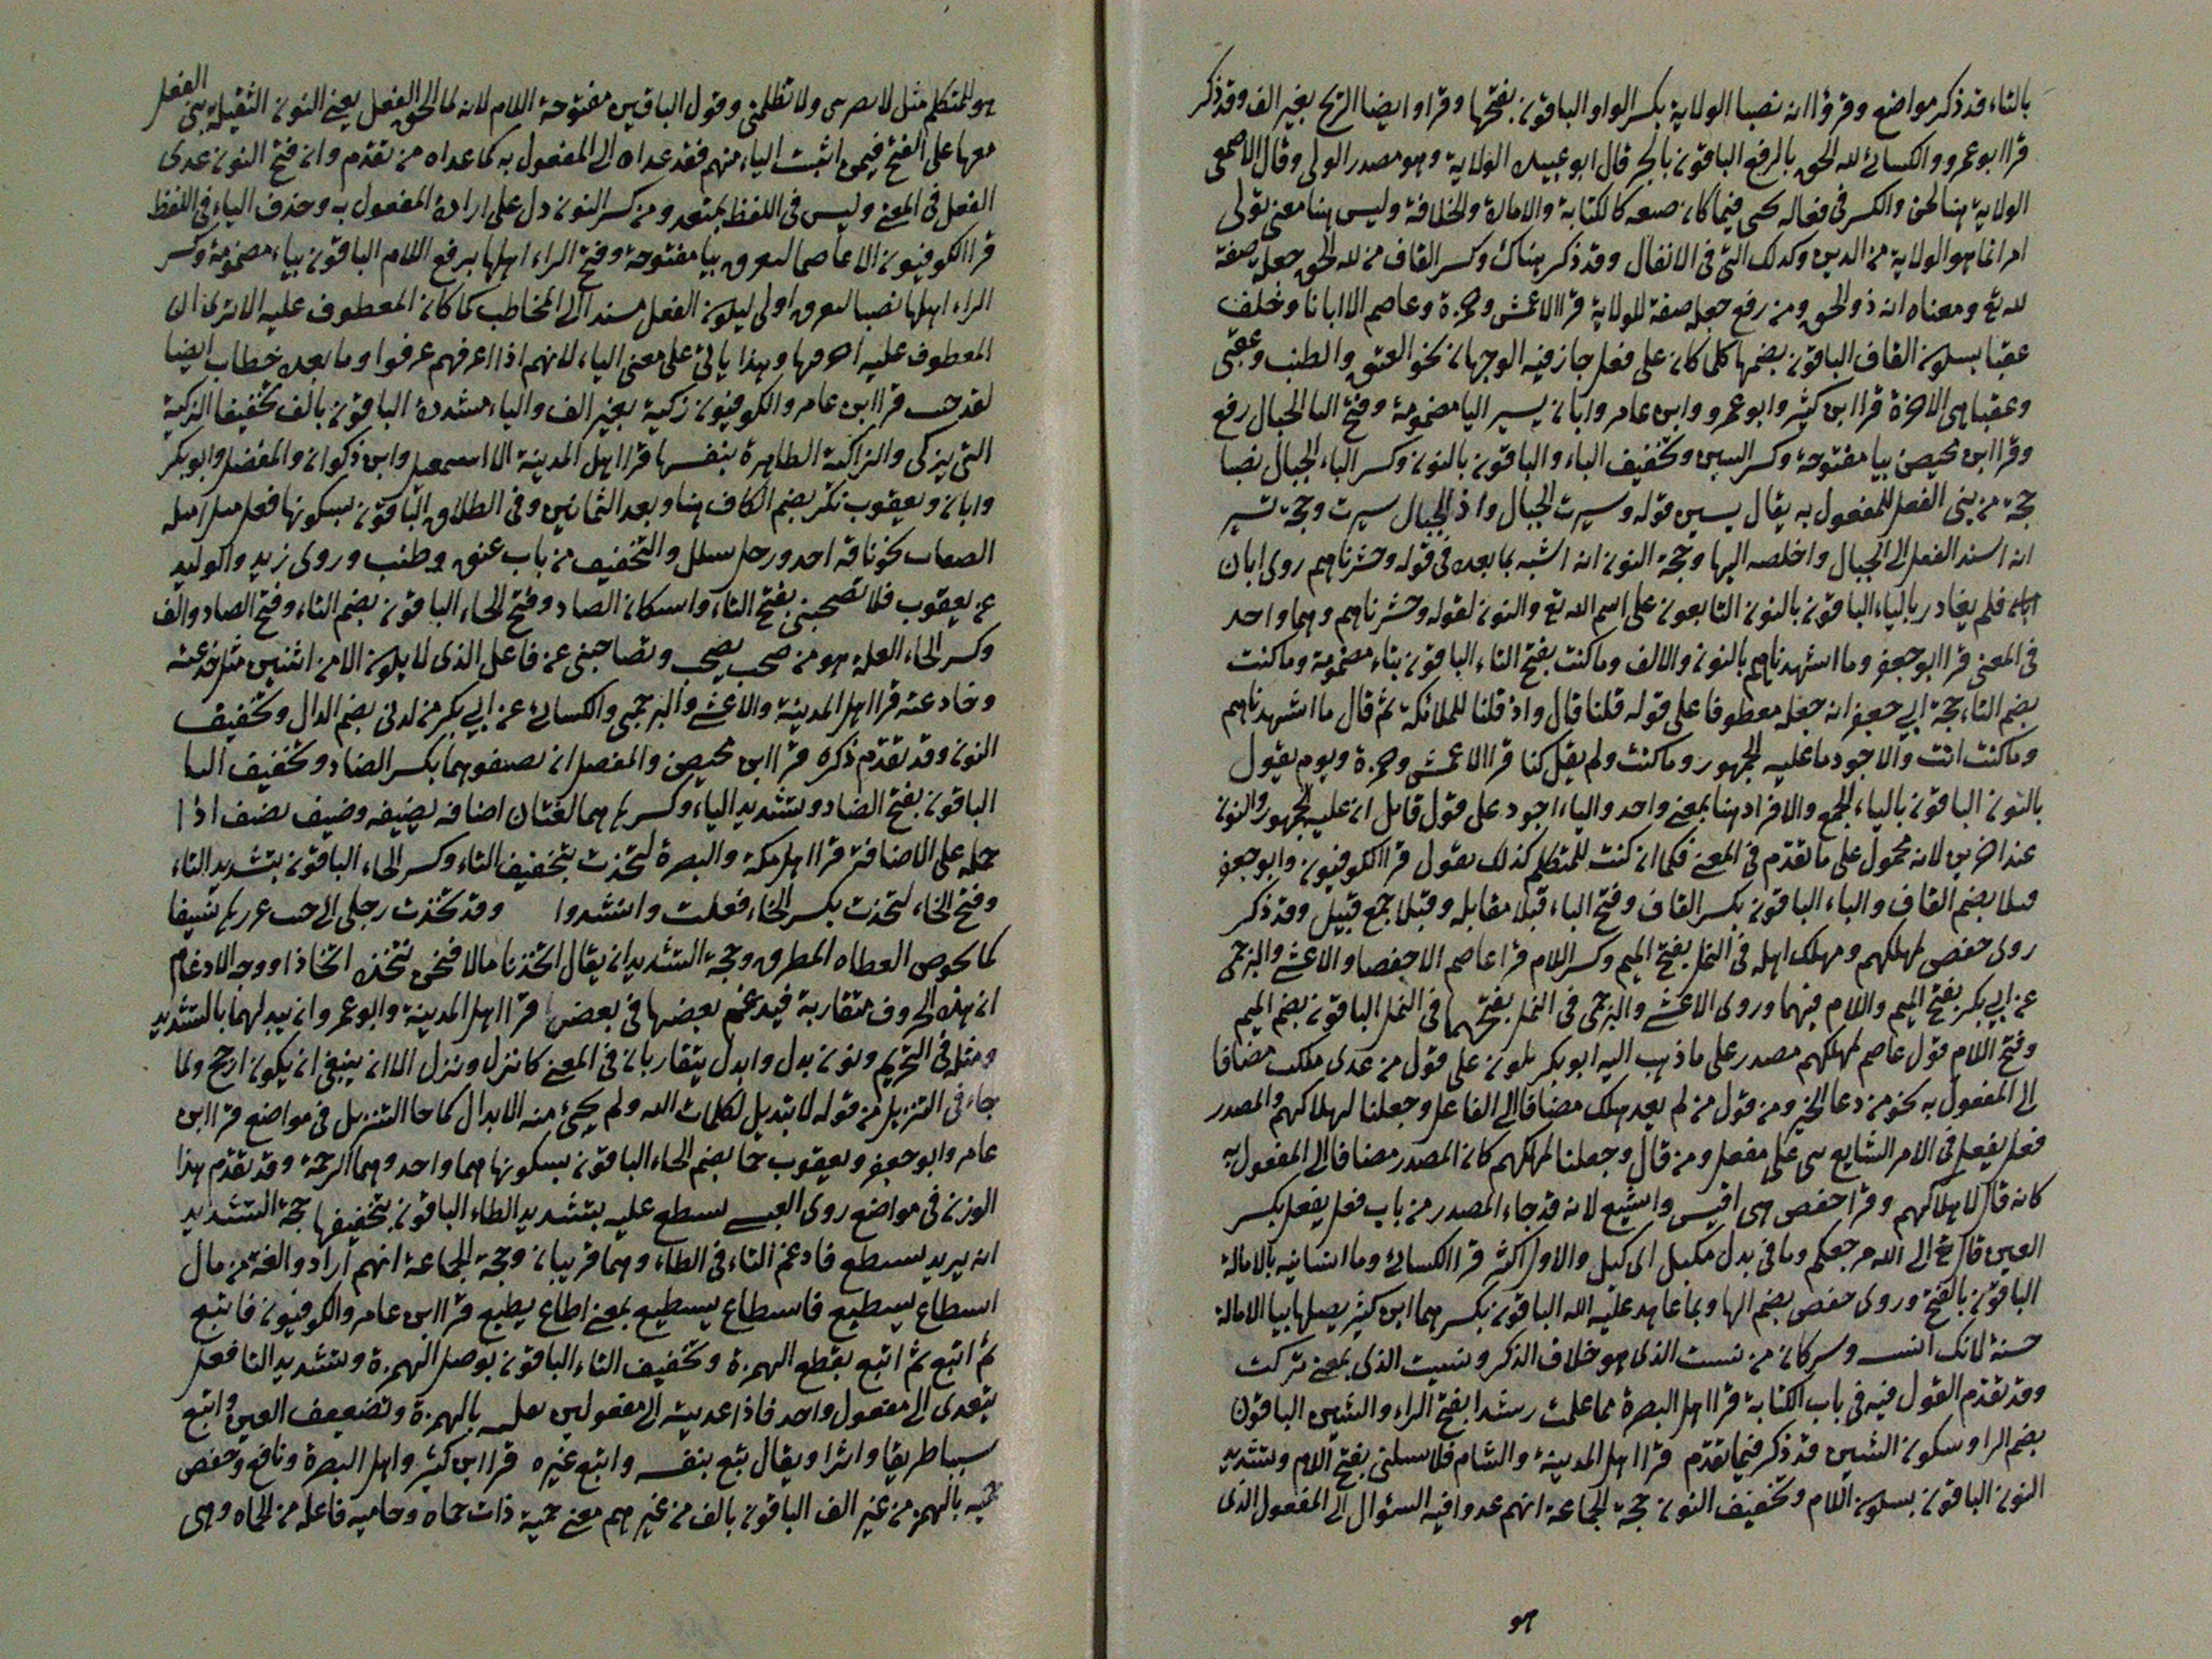 بالتاء قد ذكر مواضع وقرؤا انه نصبا الولاية بكسر الواو الباقون بفتحها وقراوا ايضا الريح بغير الف وقد ذكر
قرا ابو عمرو والكسائى لله الحق بالرفع الباقون بالجر قال ابو عبيدة الولاية وهو مصدر الولى وقال الاصمعى
الولاية هنا لحن والكسر فى فعاله يحى فيما كان صنعه كالكتابة والامارة والخلافة وليس هنا معنى تولى
امر انما هو الولاية من الدين وكدلك التى فى الانفال وقد ذكر هناك وكسر القاف من لله الحق جعله صفة
لله تع ومعناه انه ذو الحق ومن رفع جعله صفة للولاية قرا الاعمش وحمزة وعاصم الا ابانا وخلف
عقبا بسكون القاف الباقون بضمها كلما كان على فعل جاز فيه الوجهان نحو العتق والطنب وعقبى
وعقبا هى الاخرة قرا ابن كثير وابو عمرو وابن عامر وابان يسير اليا مضمومة وفتح اليا الجبال رفع
وقرا ابن محيصن بيا مفتوحة وكسر السين وتخفيف الياء والباقون بالنون وكسر الياء الجبال نصبا
حجة من بنى الفعل للمفعول به يقال يسير قوله وسيرت الجبال واذ الجبال سيرت وحجة تسير
انه اسند الفعل الى الجبال واخلصه اليها وحجة النون انه اشبه بما بعده فى قوله وحشرناهم روى ابان
فلم يغادر بالياء الباقون بالنون التابعون على اسم الله تع والنون لقوله وحشرناهم وهما واحد
فى المعنى قرا ابو جعفر وما اشهدناهم بالنون والالف وما كنت بفتح التاء الباقون بتاء مضمومة وما كنت
بضم التاء حجة ابى جعفر انه جعله معطوفا على قوله قلنا قال واذ قلنا للملائكة ثم قال ما اشهدناهم
وما كنت انت والاجود ما عليه الجمهور وما كنت ولم يقل كنا قرا الاعمش وحمزة ويوم يقول
بالنون الباقون بالياء الجمع والافراد هنا بمعنى واحد والياء اجود على قول قايل ان عليه الجمهور والنون
عند اخرين لانه محمول على ما تقدم فى المعنى فكما ان كنت للمتكلم كذلك يقول قرا الكوفيون وابو جعفر
قبلا بضم القاف والباء الباقون بكسر القاف وفتح الباء قبلا مقابله وقبلا جمع قبيل وقد ذكر
روى حفص لمهلكهم ومهلك اهله فى النمل بفتح الميم وكسر اللام قرا عاصم الا حفصا والاعشى والبرجمى
عن ابى بكر بفتح الميم واللام فيهما وروى الاعشى والبرجمى فى النمل بفتحهما فى النمل الباقون بضم الميم
وفتح اللام قول عاصم لمهلكهم مصدر على ما ذهب اليه ابو بكر يكون على قول من عدى ملكت مضافا
الى المفعول به نحو من دعا الخير ومن قول من لم يعد هلك مضافا الى الفاعل وجعلنا لهلاكهم والمصدر
فعل يفعل فى الامر الشايع مى على مفعل ومن قال وجعلنا لمهلكهم كان المصدر مضافا الى المفعول به
كانه قال لاهلاكهم وقرا حفص هى اقيس واشيع لانه قد جاء المصدر من باب فعل يفعل بكسر
العين قال تع الى الله مرجعكم وما فى بدل مكيل اى كيل والاول اكثر قرا الكسائى وما انسانيه بالامالة
الباقون بالفتح وروى حفص بضم الها وبما عاهد عليه الله الباقون بكسرهما ابن كثير يصلها بيا الامالة
حسنة لانك وسر كان من نسيت الذى هو خلاف الذكر ونسيت الذى بمعنى تركت
وقد تقدم القول فيه فى باب الكتابة قرا اهل البصرة مما علمت رشدا بفتح الراء والشين الباقون
بضم الرا وسكون الشين قد ذكر فيما تقدم قرا اهل المدينة والشام فلا تسلنى بفتح اللام وتشديد
النون الباقون بسكون اللام وتخفيف النون حجة الجماعة انهم عدوا فيه السؤال الى المفعول الذى
هو
هو للمتكلم مثل لا يضربنى ولا تظلمنى وقول الباقين مفتوحة اللام لانه لما الحق الفعل يعنى النون الثقيلة بنى الفعل
معها على الفتح فيمن اثبت الياء منهم فقد عداه الى المفعول به كما عداه من تقدم وان فتح النون عدى
الفعل فى المعنى وليس فى اللفظ بمتعد ومن كسر النون دل على ارادة المفعول به وحذف الياء فى اللفظ
قرا الكوفيون الا عاصما ليغرق بيا مفتوحة وفتح الراء اهلها برفع اللام الباقون بياء مضمومة وكسر
الراء اهلها نصبا لتغرق اولى ليكون الفعل مسندا الى المخاطب كما كان المعطوف عليه الا ترى ان
المعطوف عليه اخرقتها وهذا ياتى على معنى الياء لانهم اذا اغرقهم غرقوا وما بعده خطاب ايضا
لقد جئت قرا ابن عامر والكوفيون زكية بغير الف والياء مشددة الباقون بالف تخفيفا الزكية
التى يزكى والزاكية الطاهرة بنفسها قرا اهل المدينة الا اسمعيل وابن ذكوان والمفضل وابو بكر
وابان ويعقوب نكرا بضم الكاف هنا وبعد الثمانين وفى الطلاق الباقون بسكونها فعل
الصفات نحو ناقة احد ورجل سلل والتخفيف من باب عنق وطنب وروى زيد والوليد
عن يعقوب فلا تصحبنى بفتح التاء واسكان الصاد وفتح الحاء الباقون بضم التاء وفتح الصاد والف
وكسر الحاء العلة هو من صحب يصحب وتصاحبنى عن فاعل الذى لا يكون الا من اثنين مثل خدعته
وخادعته قرا اهل المدينة والاعشى والبرجمى والكسائى عن ابى بكر من لدنى بضم الدال وتخفيف
النون وقد تقدم ذكره قرا ابن محيصن والمفضل ان يضيفوهما بكسر الضاد وتخفيف اليا
الباقون بفتح الضاد وتشديد الياء وكسرها هما لغتان اضافه يضيفه وضيف يضيف اذا
حمله على الاضافة قرا اهل مكة والبصرة لتخذت بتخفيف التاء وكسر الخاء الباقون بتشديد التاء
وفتح الخاء لتخذت بكسر الخاء فعلت وانشدوا وقد تخذت رجلى الى جنب غرزها نسيفا
كافحوص القطاه المطرق وحجة التشديد انه يقال اتخذنا مالا فنحن نتخذه اتخاذا ووجه الادغام
ان هذه الحروف متقاربة فيدغم بعضها فى بعض قرا اهل المدينة وابو عمرو ان يبدلهما بالتشديد
ومثله فى التحريم ونون بدل وابدل يتقاربان فى المعنى كانزل ونزل الا انه ينبغى ان يكون ارجح ولما
جاء فى التنزيل من قوله لا تبديل لكلمات الله ولم يجئ منه الابدال كما جا التنزيل فى مواضع قرا ابن
عامر وابو جعفر ويعقوب رحما بضم الحاء الباقون بسكونها هما واحد وهما الرحمة وقد تقدم هذا
الوزن فى مواضع روى العبسى تسطع عليه بتشديد الطاء الباقون بتخفيفها حجة التشديد
انه يريد تستطع فادغم التاء فى الطاء وهما قريبان وحجة الجماعة انهم ارادوا لغة من قال
اسطاع يسطيع فاسطاع يسطيع بمعنى اطاع يطيع قرا ابن عامر والكوفيون فاتبع
ثم اتبع ثم اتبع بقطع الهمزة وتخفيف التاء الباقون بوصل الهمزة وتشديد التا فعل
يتعدى الى مفعول واحد فاذا عديته الى مفعولين نقلته بالهمزة وتضعيف العين واتبع
سببا طريقا واثرا ويقال تبع بنفسه واتبع غيره قرا ابن كثير واهل البصرة ونافع وحفص
حمئة بالهمز من غير الف الباقون بالف من غير همز معنى حمية ذات حماه وحامية فاعله من الحماه وهى